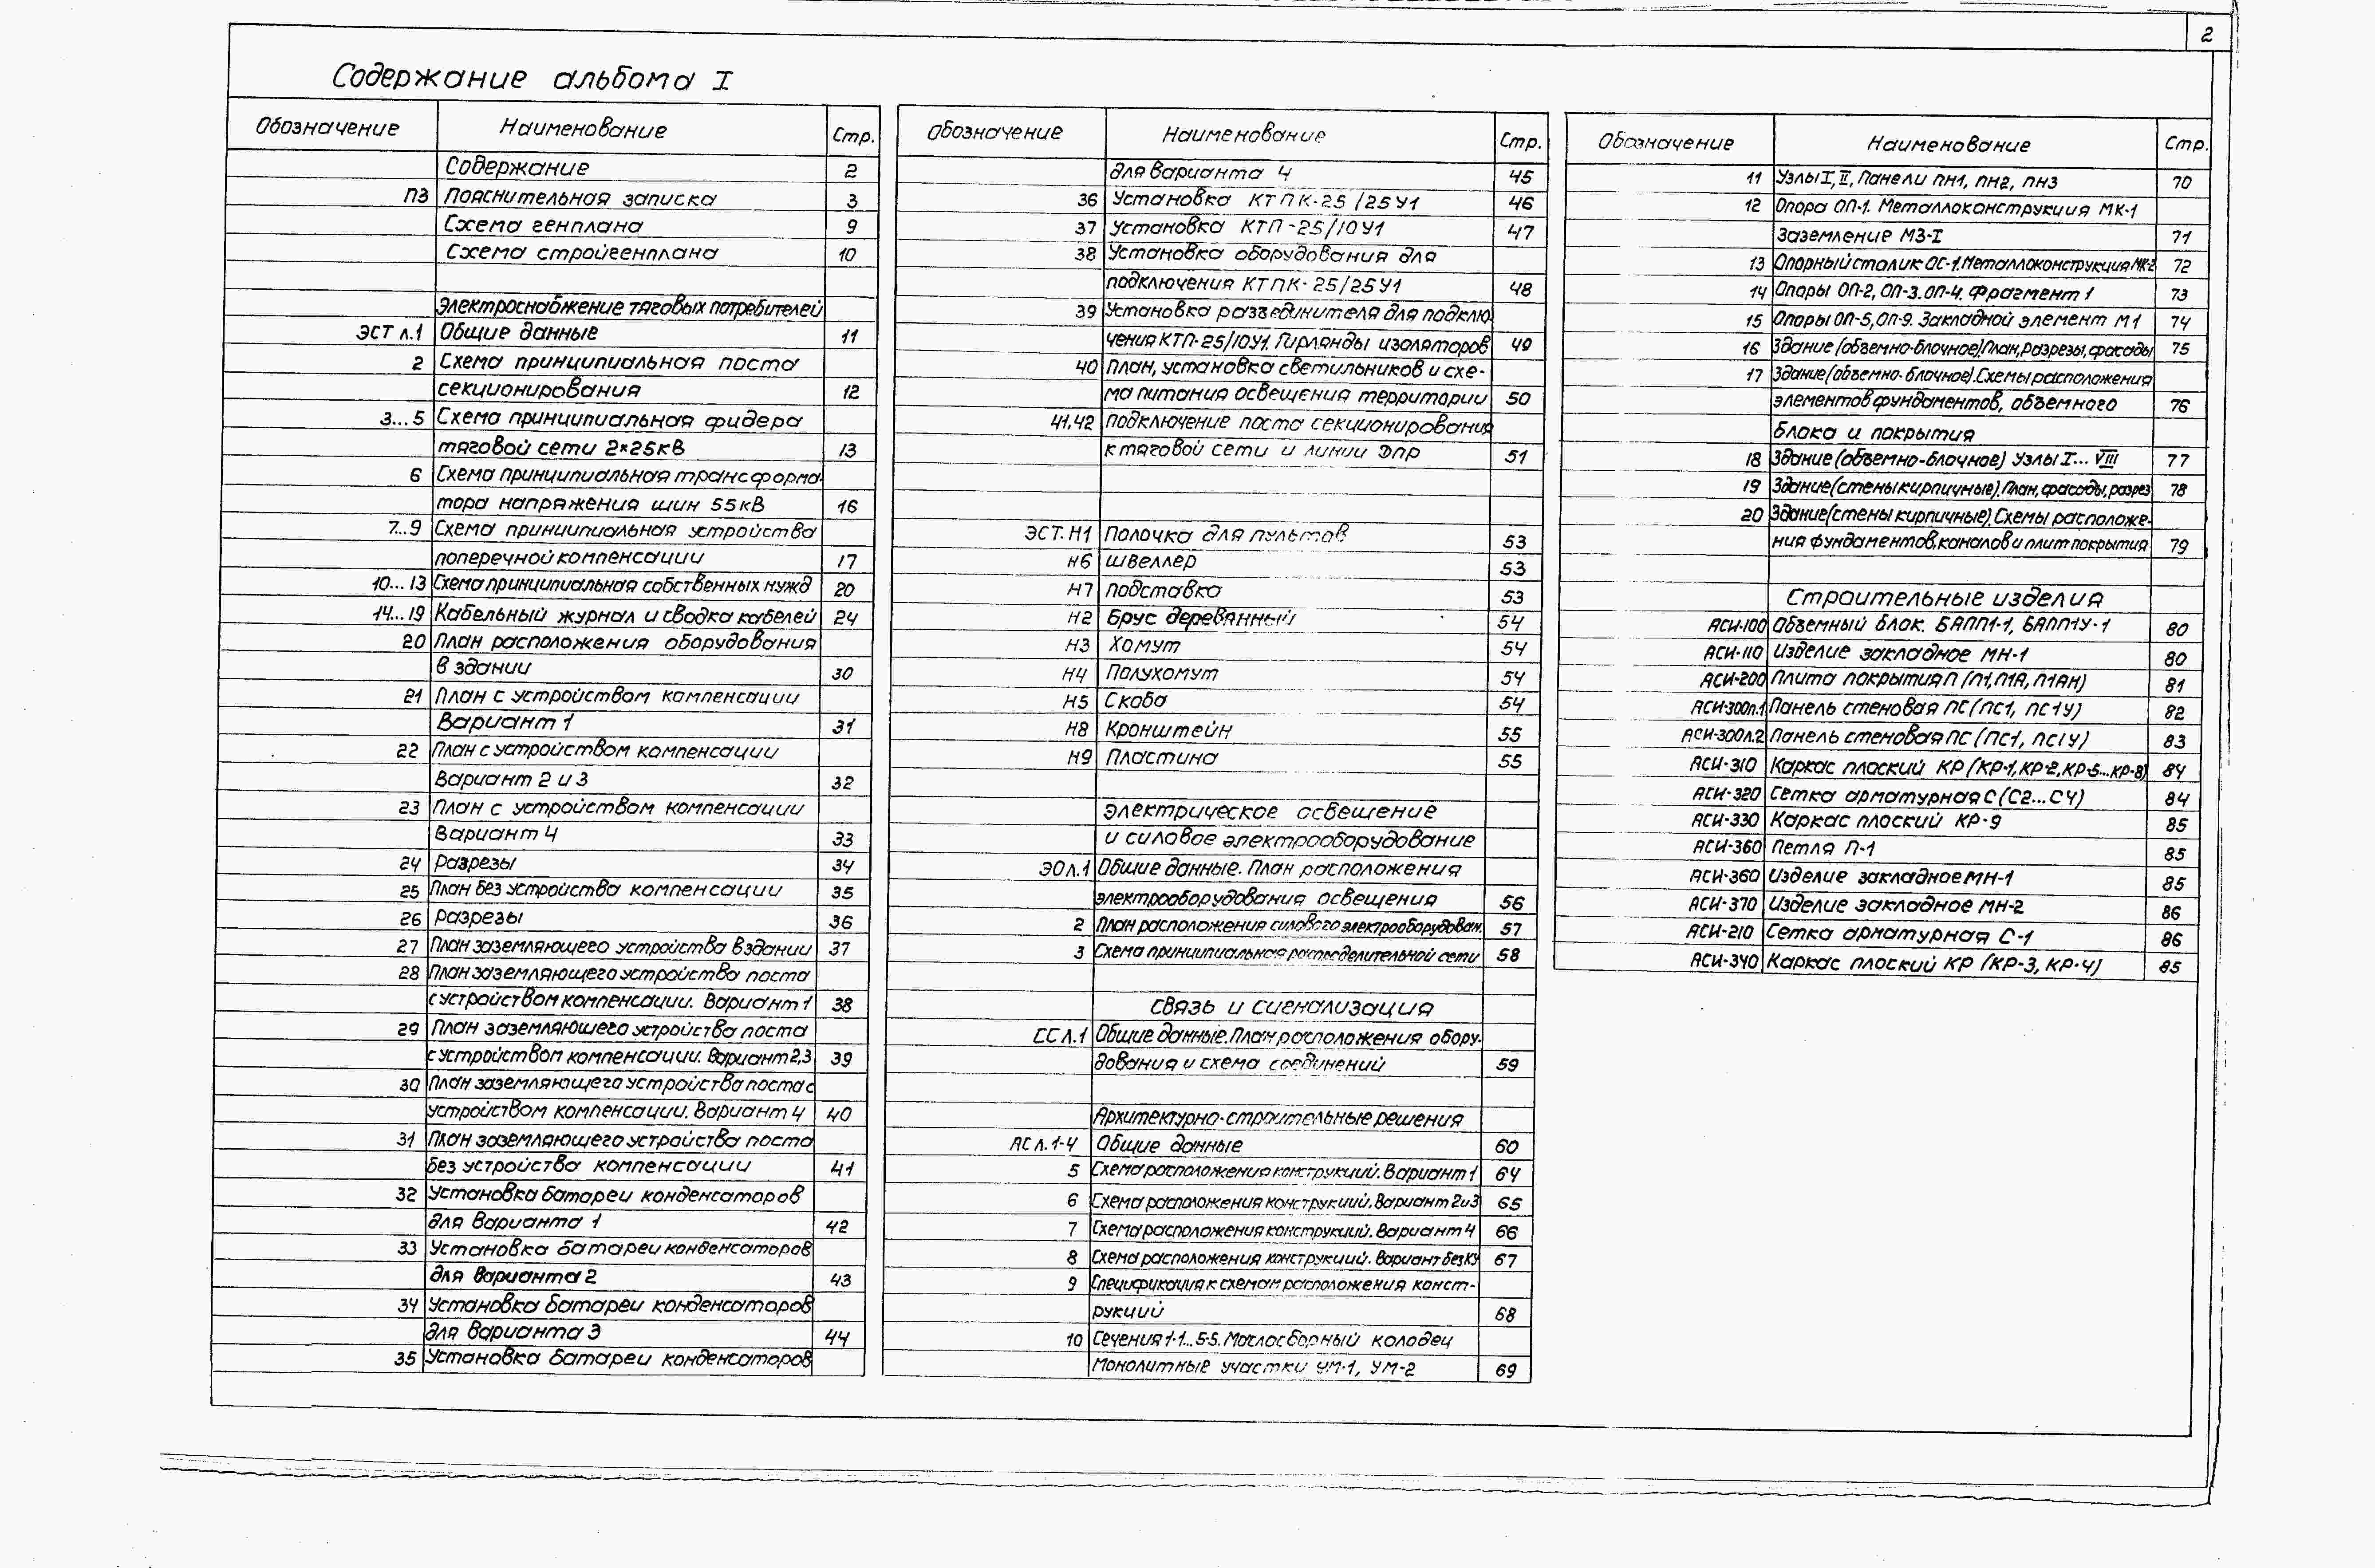 2
Содержание альбома I
Обозначение Наименование Стр.
Содержание 2
ПЗ Пояснительная записка 3
Схема генплана 9
Схема стройгенплана 10
Электроснабжение тяговых потребителей
ЭСТ л.1 Общие данные 11
2 Схема принципиальная поста
секционирования 12
3...5 Схема принципиальная фидера
тяговой сети 2×25кВ 13
6 Схема принципиальная трансформа-
тора напряжения шин 55кВ 16
7...9 Схема принципиальная устройства
поперечной компенсации 17
10...13 Схема принципиальная собственных нужд 20
14...19 Кабельный журнал и сводка кабелей 24
20 План расположения оборудования
в здании 30
21 План с устройством компенсации
Вариант 1 31
22 План с устройством компенсации
Вариант 2 и 3 32
23 План с устройством компенсации
Вариант 4 33
24 Разрезы 34
25 План без устройства компенсации 35
26 Разрезы 36
27 План заземляющего устройства в здании 37
28 План заземляющего устройства поста
с устройством компенсации. Вариант 1 38
29 План заземляющего устройства поста
с устройством компенсации. Вариант 2,3 39
30 План заземляющего устройства поста с
устройством компенсации. Вариант 4 40
31 План заземляющего устройства поста
без устройства компенсации 41
32 Установка батареи конденсаторов
для Варианта 1 42
33 Установка батареи конденсаторов
для Варианта 2 43
34 Установка батареи конденсаторов
для Варианта 3 44
35 Установка батареи конденсаторов
Обозначение Наименование Стр.
для Варианта 4 45
36 Установка КТПК-25/25У1 46
37 Установка КТП-25/10У1 47
38 Установка оборудования для
подключения КТПК-25/25У1 48
39 Установка разъединителя для подклю
чения КТП-25/10У1. Гирлянды изоляторов 49
40 План, установка светильников и схе-
ма питания освещения территории 50
41,42 Подключение поста секционирования
к тяговой сети и линии ДПР 51
ЭСТ. Н1 Полочка для пультов 53
Н6 Швеллер 53
Н7 Подставка 53
Н2 Брус деревянный 54
Н3 Хомут 54
Н4 Полухомут 54
Н5 Скоба 54
Н8 Кронштейн 55
Н9 Пластина 55
Электрическое освещение
и силовое электрооборудование
ЭО л.1 Общие данные. План расположения
электрооборудования освещения 56
2 План расположения силового электрооборудован. 57
3 Схема принципиальная распределительной сети 58
Связь и сигнализация
СС л.1 Общие данные. План расположения обору-
дования и схема соединений 59
Архитектурно-строительные решения
АС л.1-4 Общие данные 60
5 Схема расположения конструкций. Вариант 1 64
6 Схема расположения конструкций. Вариант 2 и 3 65
7 Схема расположения конструкций. Вариант 4 66
8 Схема расположения конструкций. Вариант без КУ 67
9 Спецификация к схемам расположения конст-
рукций 68
10 Сечения 1-1...5-5. Маслосборный колодец
Монолитные участки УМ-1, УМ-2 69
Обозначение Наименование Стр.
11 Узлы I, II, Панели ПН1, ПН2, ПН3 70
12 Опора ОП-1. Металлоконструкция МК-1
Заземление МЗ-I 71
13 Опорный столик ОС-1. Металлоконструкция МК-2 72
14 Опоры ОП-2, ОП-3. ОП-4. Фрагмент 1 73
15 Опоры ОП-5, ОП-9. Закладной элемент М1 74
16 Здание (объемно-блочное). План, разрезы, фасады 75
17 Здание (объемно-блочное). Схемы расположения
элементов фундаментов, объемного 76
блока и покрытия
18 Здание (объемно-блочное) Узлы I... VIII 77
19 Здание (стены кирпичные). План, фасады, разрез 78
20 Здание (стены кирпичные). Схемы расположе-
ния фундаментов, каналов и плит покрытия 79
Строительные изделия
АСИ-100 Объемный блок. БАПП1-1, БАПП1У-1 80
АСИ-110 Изделие закладное МН-1 80
АСИ-200 Плита покрытия П (П1, П1А, П1АН) 81
АСИ-300л.1 Панель стеновая ПС (ПС1, ПС1У) 82
АСИ-300л.2 Панель стеновая ПС (ПС1, ПС1У) 83
АСИ-310 Каркас плоский КР (КР-1, КР-2, КР-5...КР-8) 84
АСИ-320 Сетка арматурная С (С2...С4) 84
АСИ-330 Каркас плоский КР-9 85
АСИ-360 Петля П-1 85
АСИ-360 Изделие закладное МН-1 85
АСИ-370 Изделие закладное МН-2 86
АСИ-210 Сетка арматурная С-1 86
АСИ-340 Каркас плоский КР (КР-3, КР-4) 85